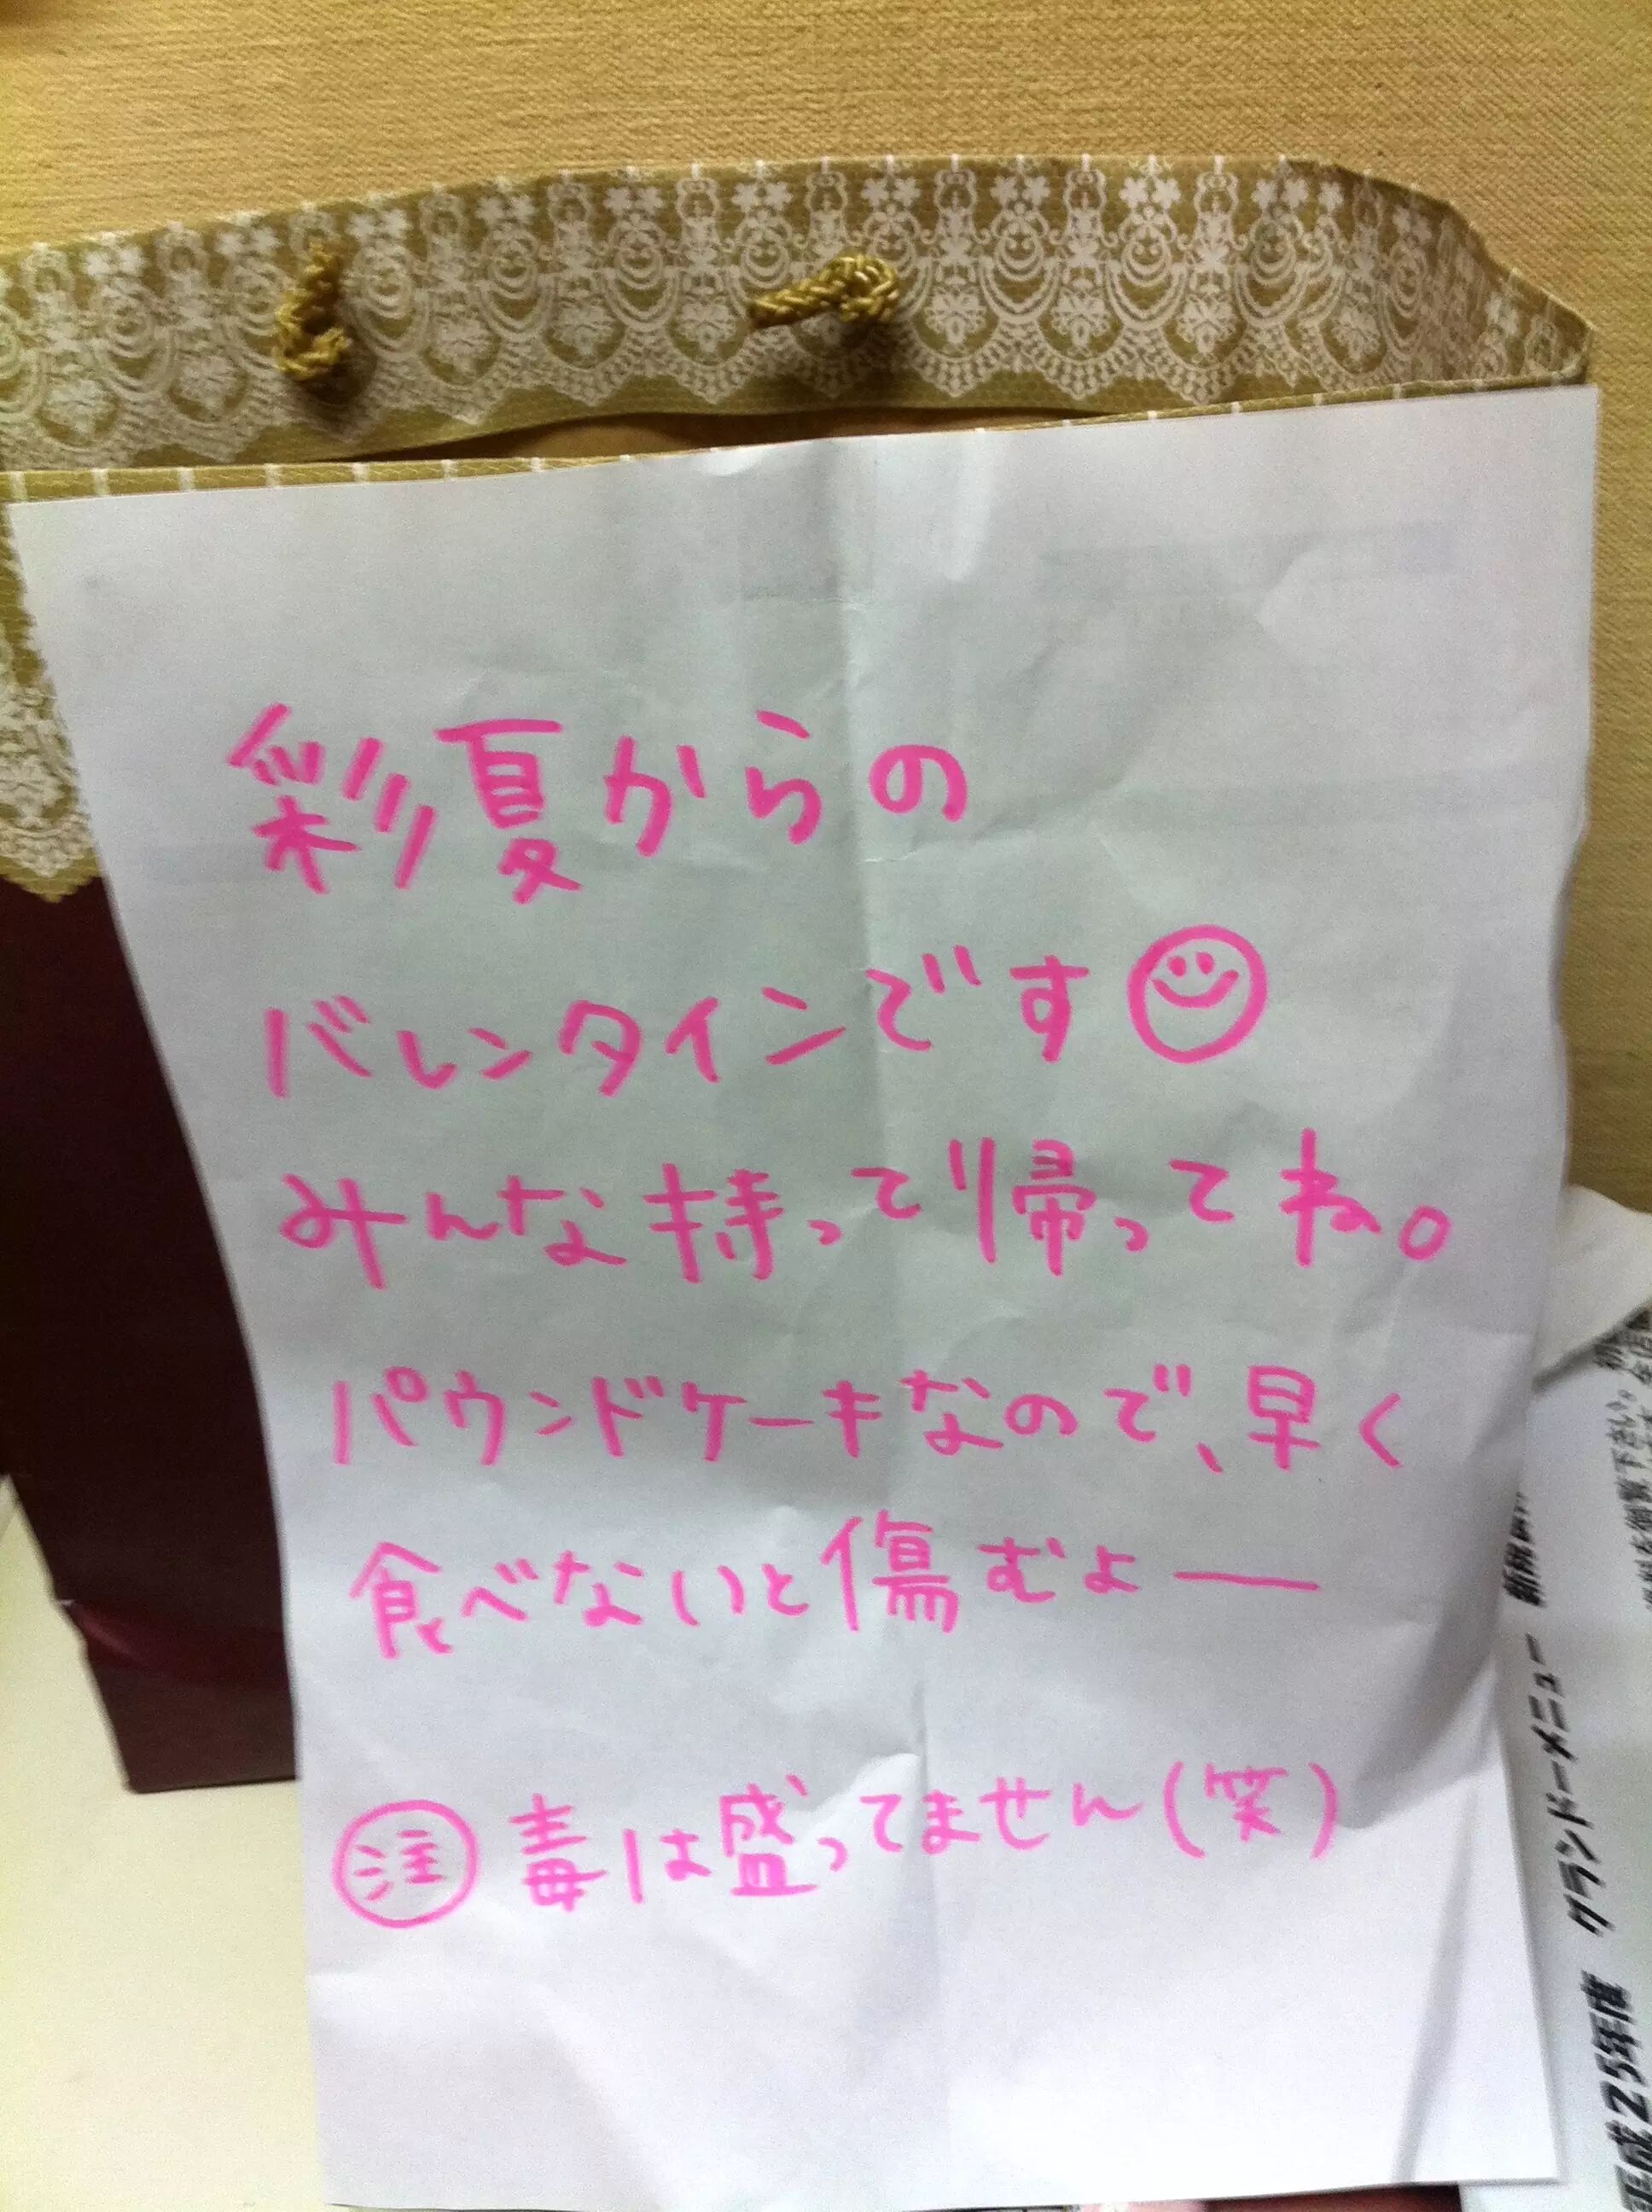 彩夏からの
バレンタインです
みんな持って帰ってね。
パウンドケーキなので、早く
食べないと傷むよー
注 毒は盛ってません(笑)
平成25年度 グランドーメニュー